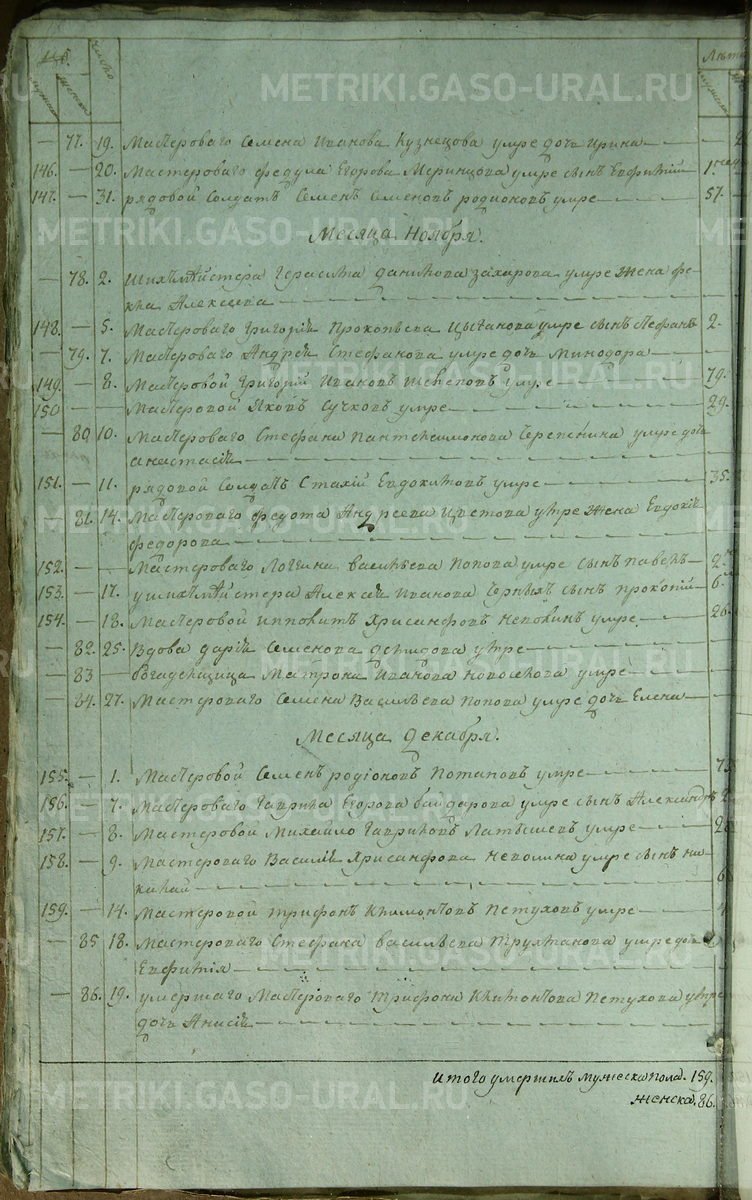 число
Лѣта
мужеска женска
— 77. 19. Мастероваго Семена Иванова Кузнецова умре дочь Ирина —
146. — 20. Мастероваго Федула Егорова Меринцова умре сынъ Евфимій 1. нед
147. — 31. рядовой солдатъ Семенъ Семеновъ родионовъ умре — 57.
Месяца Ноября.
— 78. 2. Шихмѣйстера Герасима Данилова Захарова умре жена Фе-
кла Алексеева —
148. — 5. Мастероваго Григорія Прокопьева Цыганова умре сынъ Стефанъ 2.
— 79. 7. Мастероваго Андрея Стефанова умре дочь Минодора —
149. — 8. Мастеровой Григорій Ивановъ умре — 79.
150 — — Мастеровой Яковъ Сучковъ умре — 29.
— 80 10. Мастероваго Стефана Пантелеимонова Черепенина умре дочь
Анастасія —
151. — 11. рядовой солдатъ Стахій Евдокимовъ умре — 35.
— 81. 14. Мастероваго Федота Андреева Цветова умре жена Евдокія
Федорова —
152. — — Мастероваго Логгина Васильева Попова умре сынъ Павелъ — 2
153. — 17. у шихмѣйстера Алексея Иванова Черныхъ сынъ Прокопій — 6
154. — 18. Мастеровой Ипполитъ Хрисанфовъ Неволинъ умре — 26.
— 82. 25. Вдова Дарія Семенова Демидова умре —
— 83 — богаделщица Матрона Иванова умре —
— 84. 27. Мастероваго Семена Васильева Попова умре дочь Елена —
Месяца Декабря.
155. — 1. Мастеровой Семенъ родіоновъ Потаповъ умре — 73
156. — 7. Мастероваго Гаврила Егорова Байдарова умре сынъ Александръ 2
157. — 8. Мастеровой Михайло Гавриловъ Латышевъ умре — 2
158. — 9. Мастероваго Василія Хрисанфова Неволина умре сынъ Ни-
колай — 6
159. — 14. Мастеровой Трифонъ Климонтовъ Петуховъ умре — 4
— 85 18. Мастероваго Стефана Васильева Трухтанова умре дочь
Евфимія —
— 86. 19. умершаго Мастероваго Трифона Климонтова Петухова умре
дочь Анисія —
Итого умершихъ мужеска пола. 159.
женска. 86.
METRIKI.GASO-URAL.RU